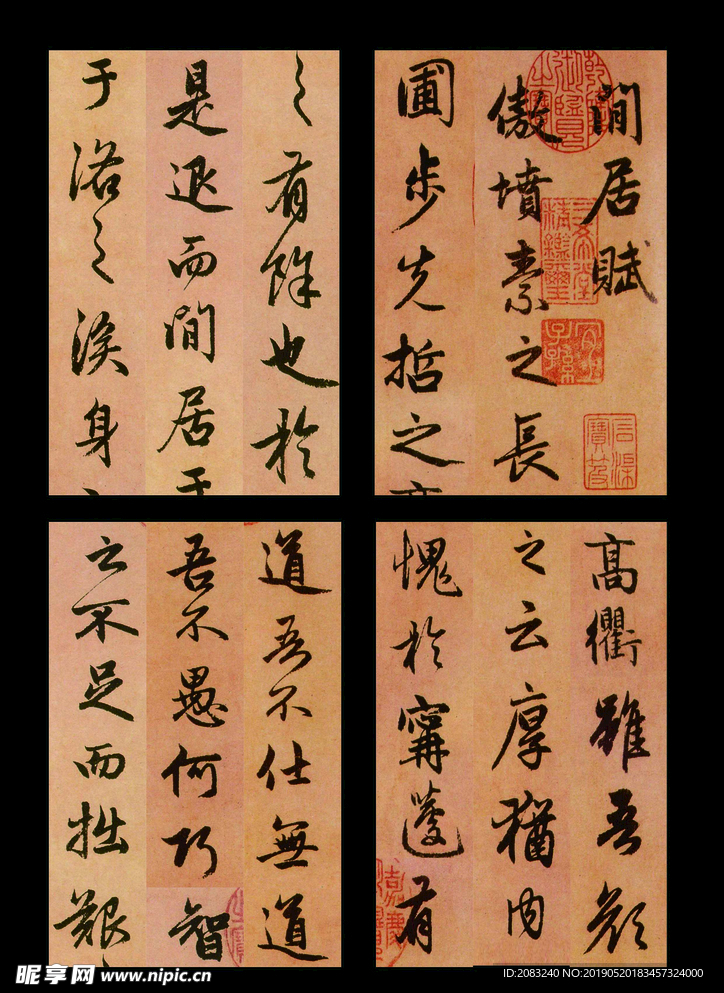 閒居賦
傲墳素之長
圃步先哲之
高衢雖吾顏
之云厚猶内
愧於寗蘧有
道吾不仕無道
吾不愚何巧智
之不足而拙艱
之有餘也於
是退而閒居
于洛之涘身
三希堂精鑑璽
宜子孫
昵享网 www.nipic.cn
ID:2083240 NO:20190520183457324000